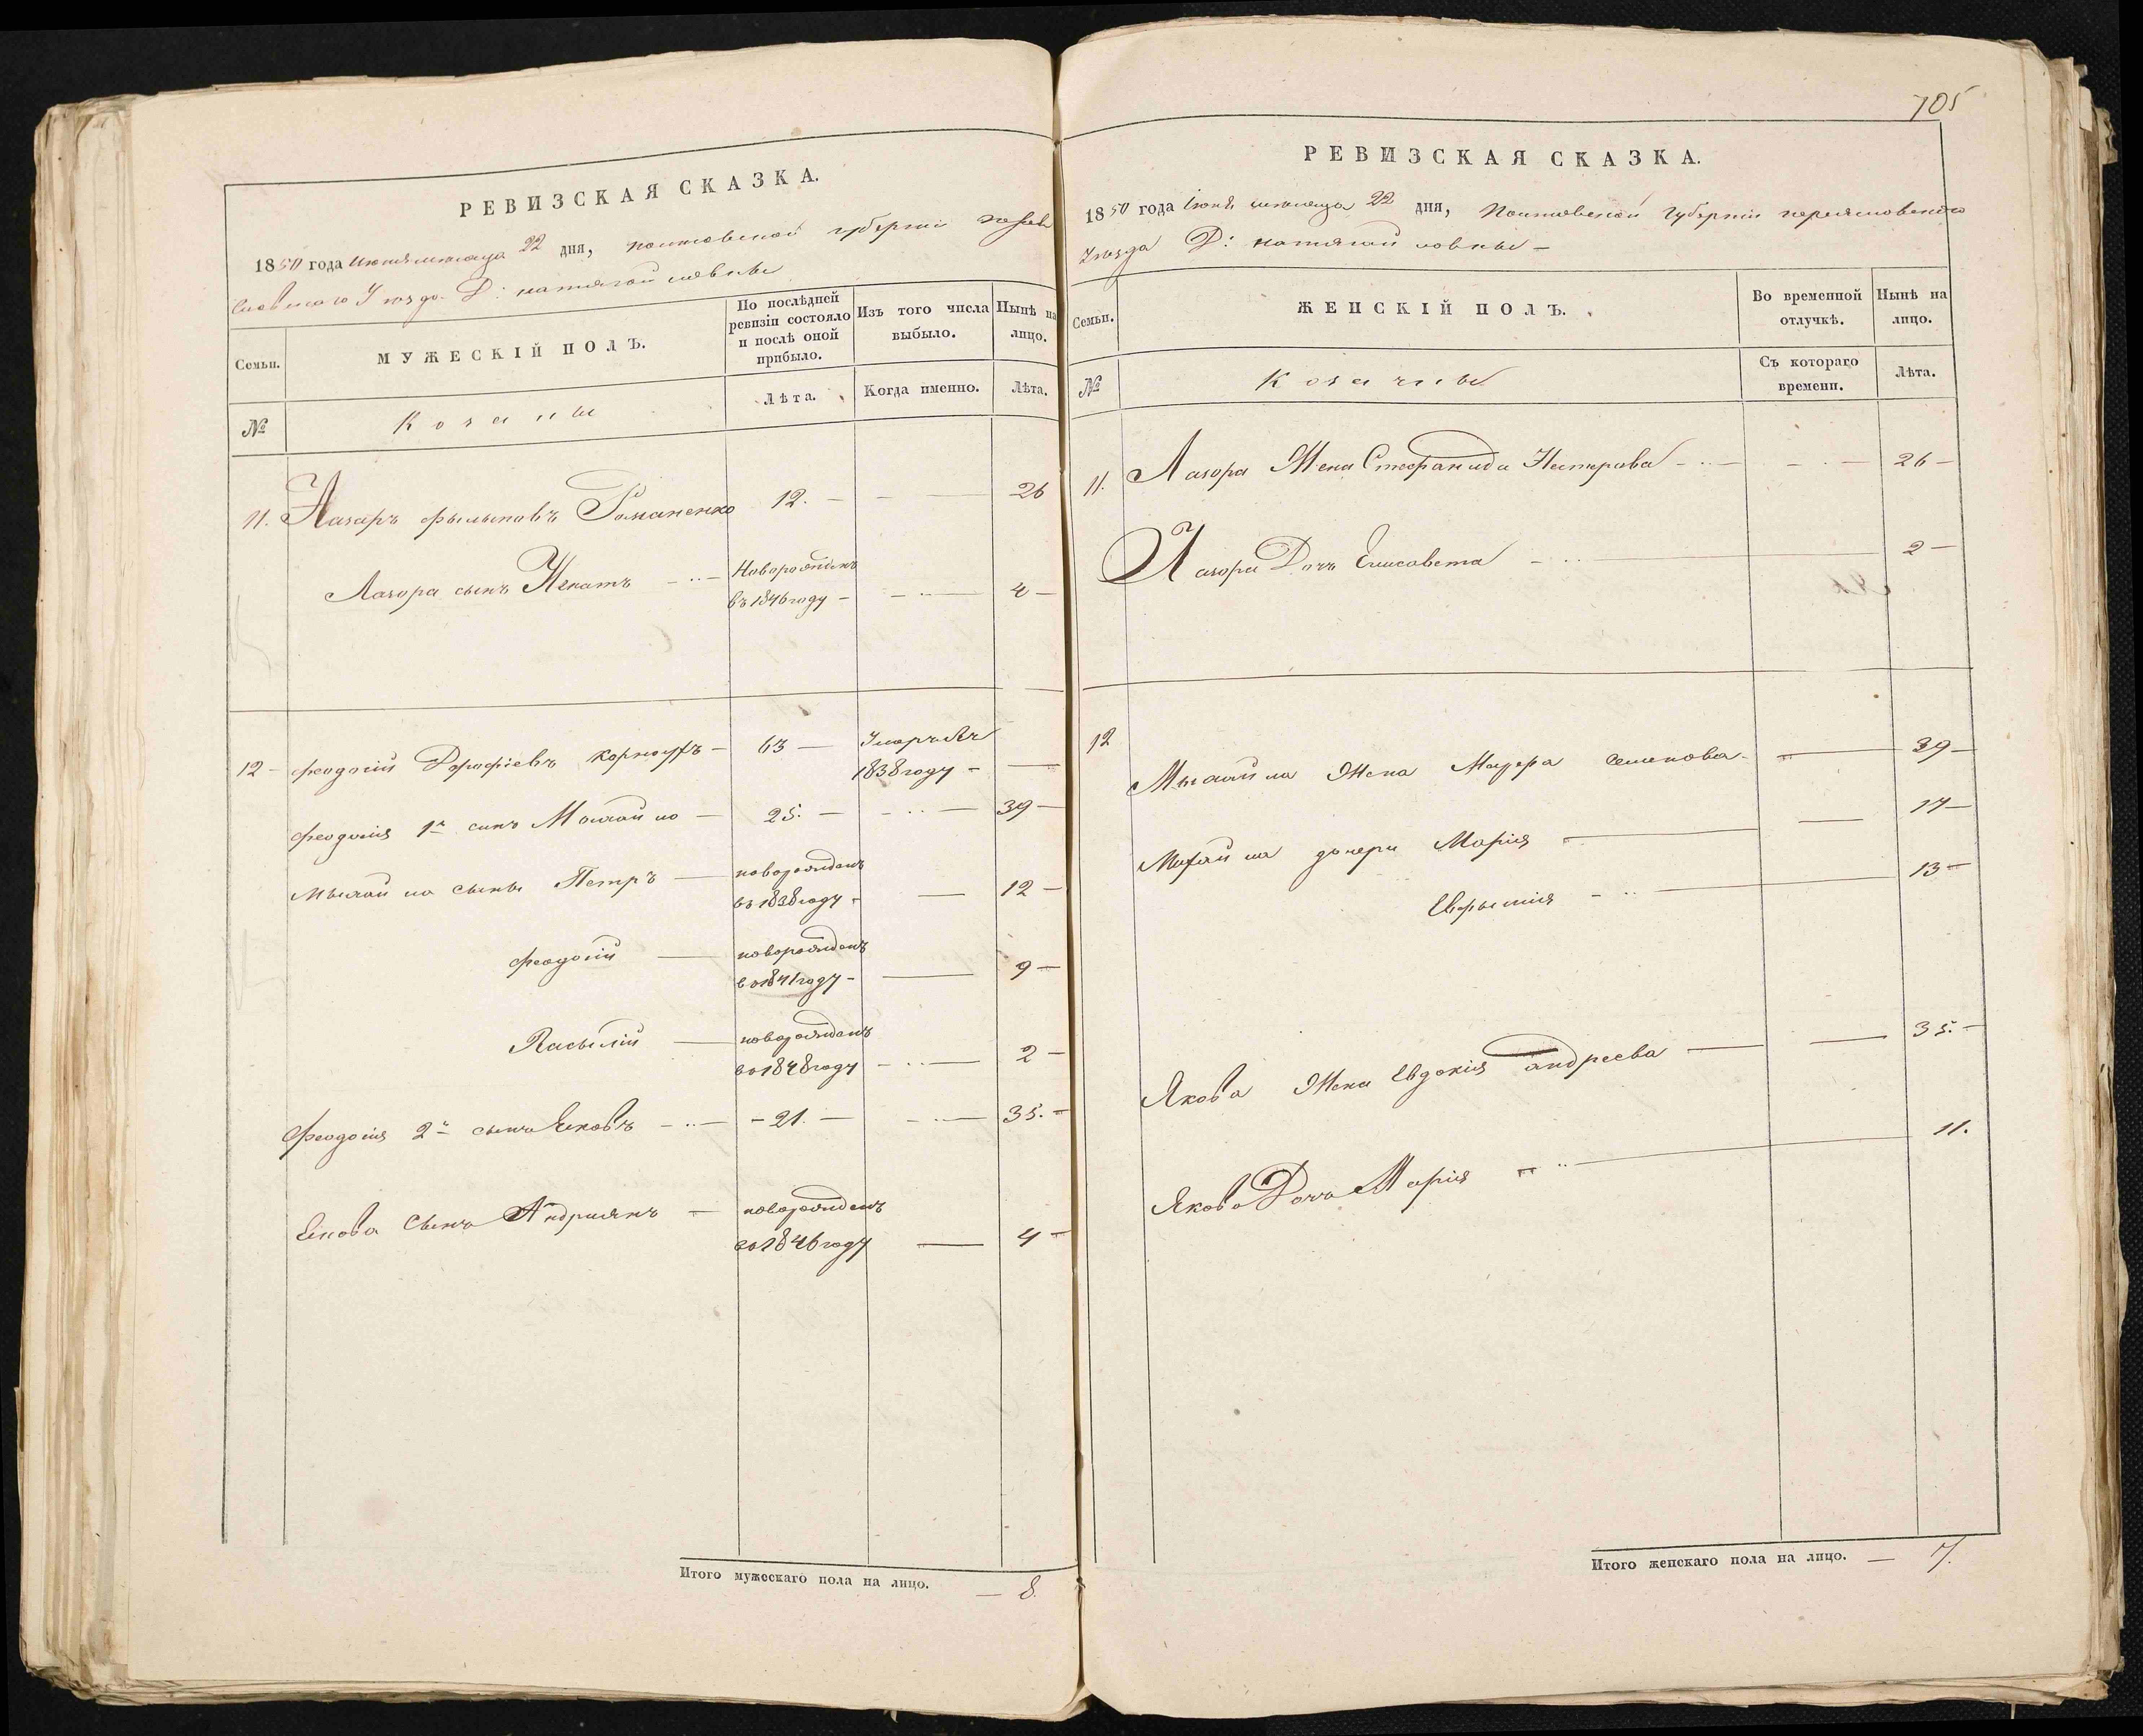 РЕВИЗСКАЯ СКАЗКА.
1850 года июня месяца 22 дня, Полтавской губернии
Уезда Д:
Семьи.
МУЖЕСКІЙ ПОЛЪ.
По послѣдней ревизіи состояло и послѣ оной прибыло.
Изъ того числа выбыло.
Нынѣ на лицо.
№
Козаки
Лѣта.
Когда именно.
Лѣта.
11. Лазаръ Романенко 12. — 26
Лазора сынъ Игнатъ Новорожденъ въ 1846 году — 4 —
12 — Феодосій Дорофіевъ Корноухъ — 63 — Умеръ въ 1838 году —
Феодосія 1й сынъ — 25. — 39 —
сыны Петръ — новорожденъ въ 1838 году — 12 —
Феодосій — новорожденъ въ 1841 году — 9 —
Василій — новорожденъ въ 1848 году — 2 —
Феодосія 2й сынъ Яковъ — 21. — 35. —
Якова сынъ Андриянъ — новорожденъ въ 1846 году — 4 —
Итого мужескаго пола на лицо. — 8.
705
РЕВИЗСКАЯ СКАЗКА.
1850 года Іюня месяца 22 дня, Полтавской губерніи
Уезда Д:
Семьи.
ЖЕНСКІЙ ПОЛЪ.
Во временной отлучкѣ.
Нынѣ на лицо.
№
Съ котораго времени.
Лѣта.
11. Лазора Жена Стефанида Нестерова — 26 —
Лазора Дочь Елисавета — 2 —
12
Жена Мавра Семенова — 39 —
дочери Марія — 17 —
Евфимія — 13 —
Якова Жена Евдокія Андреева — 35. —
Якова Дочь Марія — 11.
Итого женскаго пола на лицо. — 7.